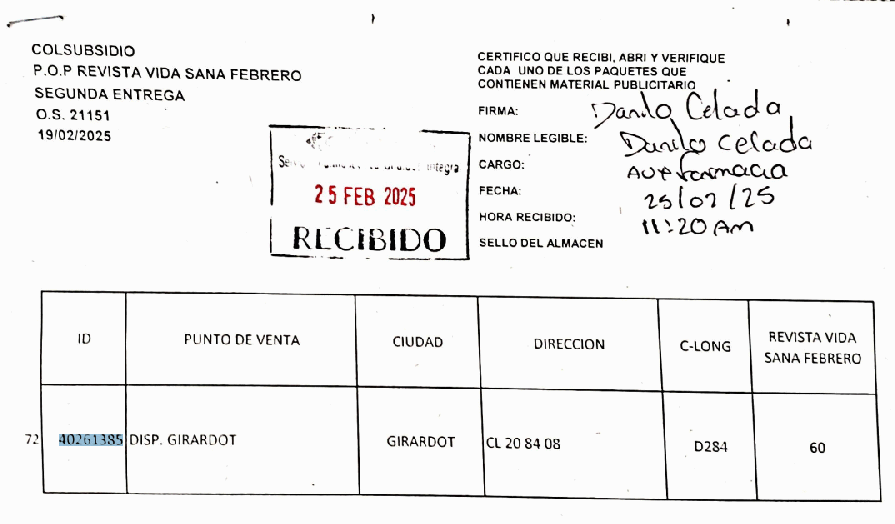 COLSUBSIDIO
P.O.P REVISTA VIDA SANA FEBRERO
SEGUNDA ENTREGA
O.S. 21151
19/02/2025
CERTIFICO QUE RECIBI, ABRI Y VERIFIQUE
CADA UNO DE LOS PAQUETES QUE
CONTIENEN MATERIAL PUBLICITARIO
FIRMA: Danilo Celada
NOMBRE LEGIBLE: Danilo Celada
CARGO: Aux farmacia
FECHA: 25/02/25
HORA RECIBIDO: 11:20 Am
SELLO DEL ALMACEN
25 FEB 2025
RECIBIDO
ID PUNTO DE VENTA CIUDAD DIRECCION C-LONG REVISTA VIDA
SANA FEBRERO
72 40261385 DISP. GIRARDOT GIRARDOT CL 20 84 08 D284 60